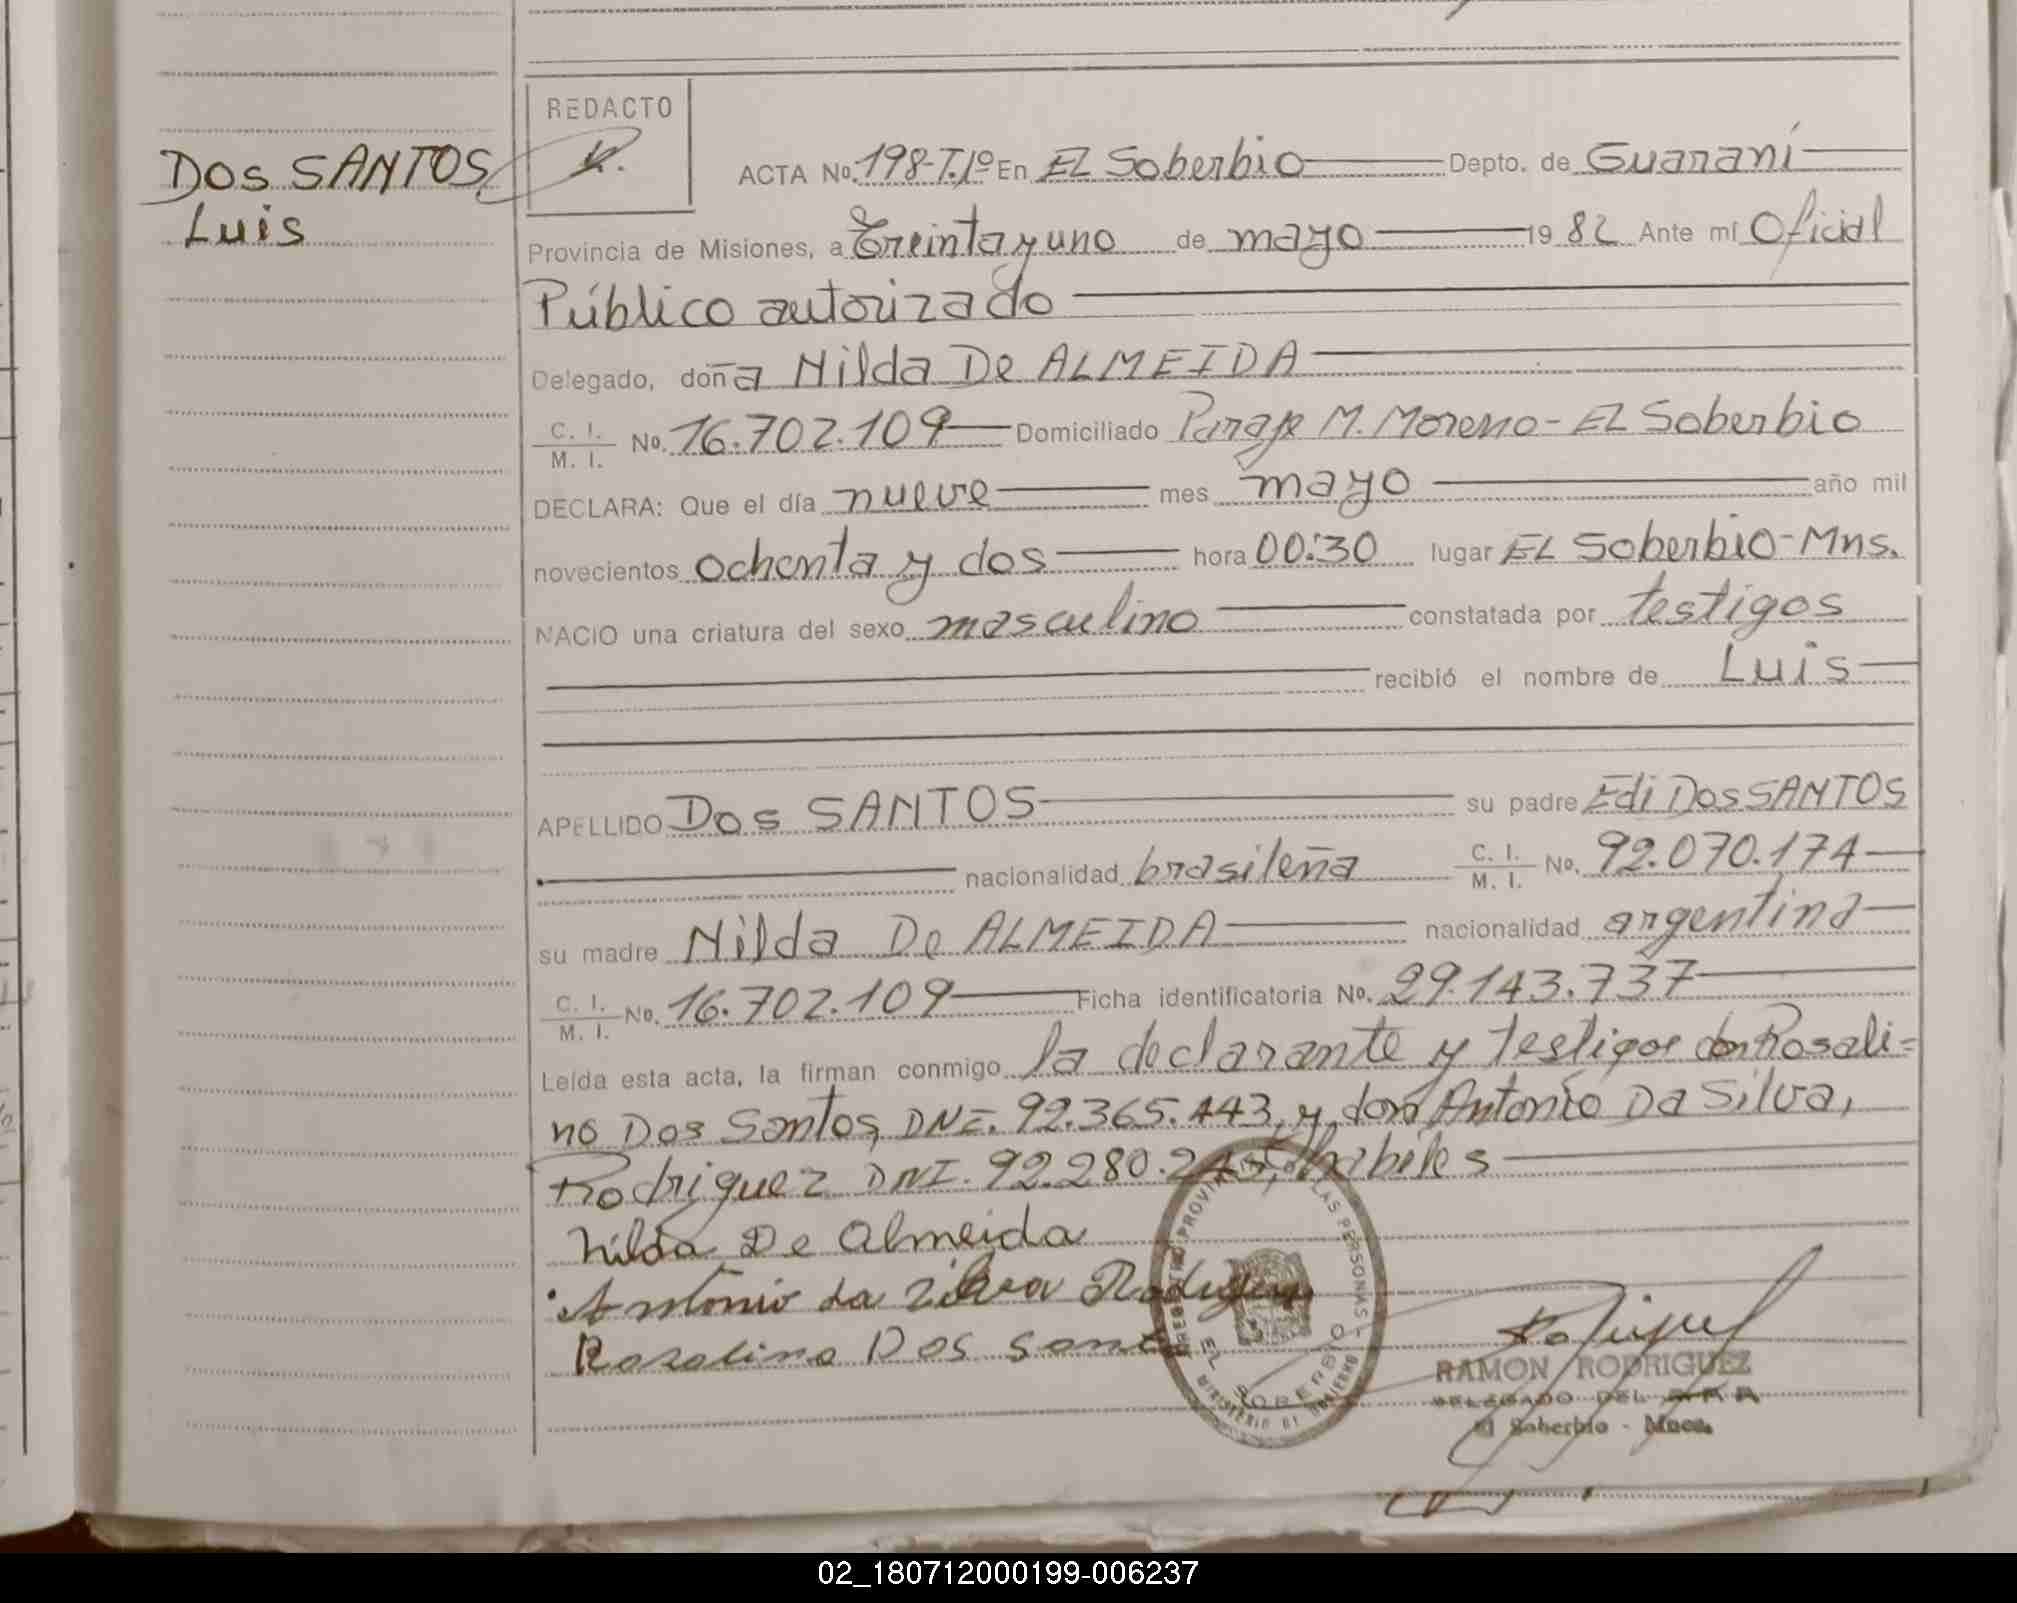 REDACTO
DOS SANTOS
Luis
ACTA No. 198-T.1º En EL Soberbio Depto. de Guaraní
Provincia de Misiones, a Treinta y uno de mayo 1982 Ante mí Oficial
Público autorizado
Delegado, doña Nilda De ALMEIDA
C. I. / M. I. No. 16.702.109 Domiciliado Paraje M. Moreno - EL Soberbio
DECLARA: Que el día nueve mes mayo año mil
novecientos ochenta y dos hora 00:30 lugar EL Soberbio - Mns.
NACIO una criatura del sexo masculino constatada por testigos
recibió el nombre de Luis
APELLIDO Dos SANTOS su padre Edi Dos SANTOS
nacionalidad brasileña C. I. / M. I. No. 92.070.174
su madre Nilda De ALMEIDA nacionalidad argentina
C. I. / M. I. No. 16.702.109 Ficha identificatoria No. 29.143.737
Leída esta acta, la firman conmigo la declarante y testigos don Rosali=
no Dos Santos, DNI. 92.365.443, y don Antonio Da Silva,
Rodriguez DNI. 92.280. hábiles
Nilda De Almeida
Antonio da Silva Rodriguez
Rosalino Dos Santos
EL SOBERBIO
RAMON RODRIGUEZ
DELEGADO DEL
El Soberbio - Mnes.
02_180712000199-006237